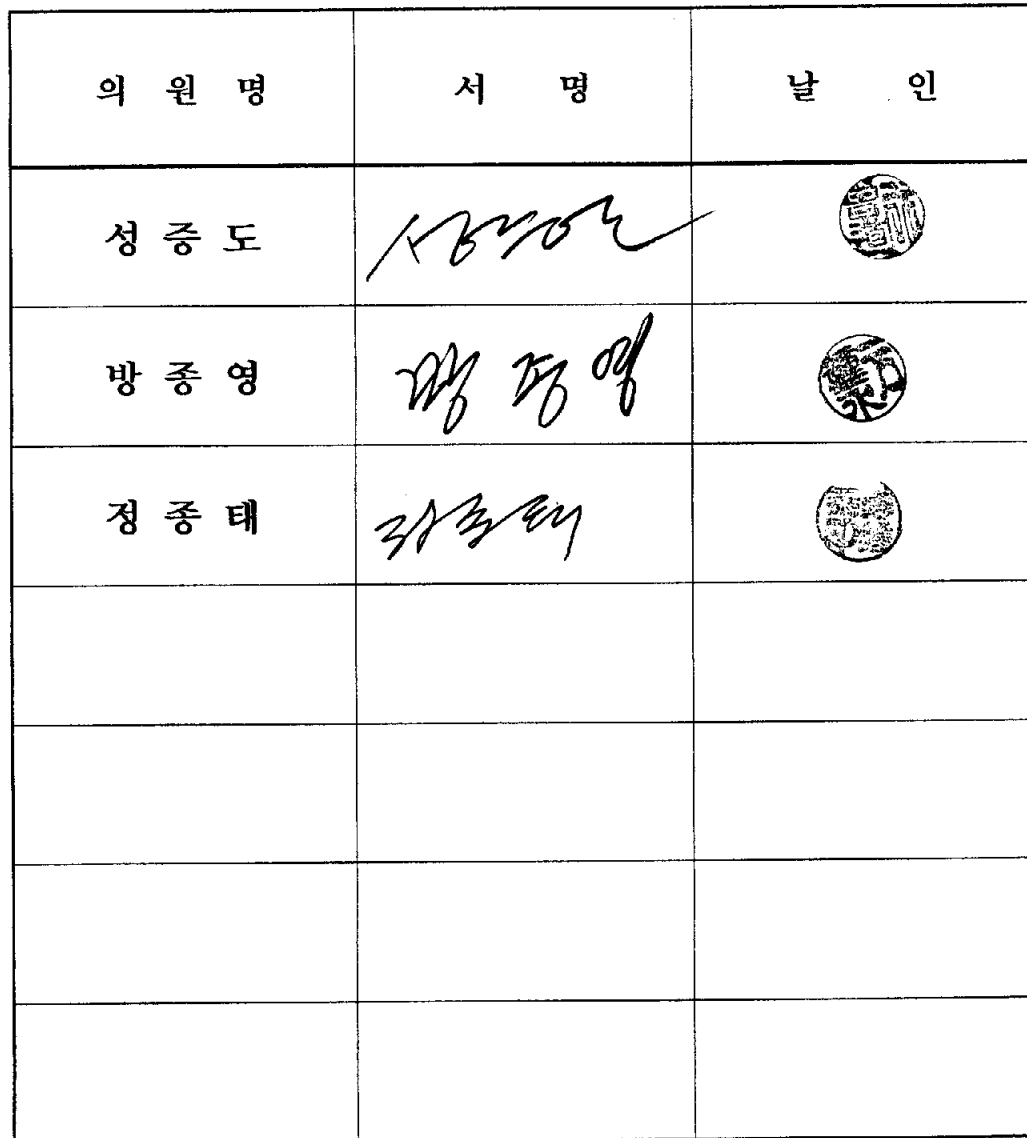 의 원 명 서 명 날 인
성 증 도
방 종 영 방 종 영
정 종 태 정종태